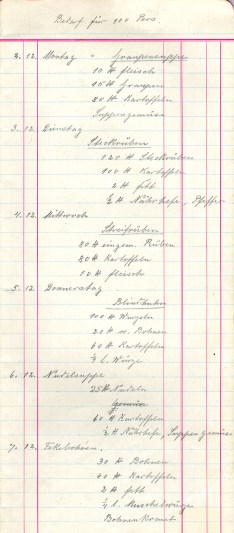 Bedarf für 200 Pers.
2. 12. Montag " Graupensuppe
10 ℔ Fleisch
15 ℔ Graupen
80 ℔ Kartoffeln
Suppengemüse
3. 12. Dienstag
Steckrüben
120 ℔ Steckrüben
100 ℔ Kartoffeln
2 ℔ Fett
½ ℔ Nährhefe, Pfeffer
4. 12. Mittwoch
Streifrüben
80 ℔ eingem. Rüben
80 ℔ Kartoffeln
10 ℔ Fleisch
5. 12. Donnerstag
Blindhuhn
100 ℔ Wurzeln
20 ℔ w. Bohnen
60 ℔ Kartoffeln
½ l. Würze
6. 12. Nudelsuppe
25 ℔ Nudeln
60 ℔ Kartoffeln
½ ℔ Nährhefe, Suppengemüse
7. 12.
30 ℔ Bohnen
60 ℔ Kartoffeln
2 ℔ Fett
¼ l. Muschelwürze
Bohnenkraut